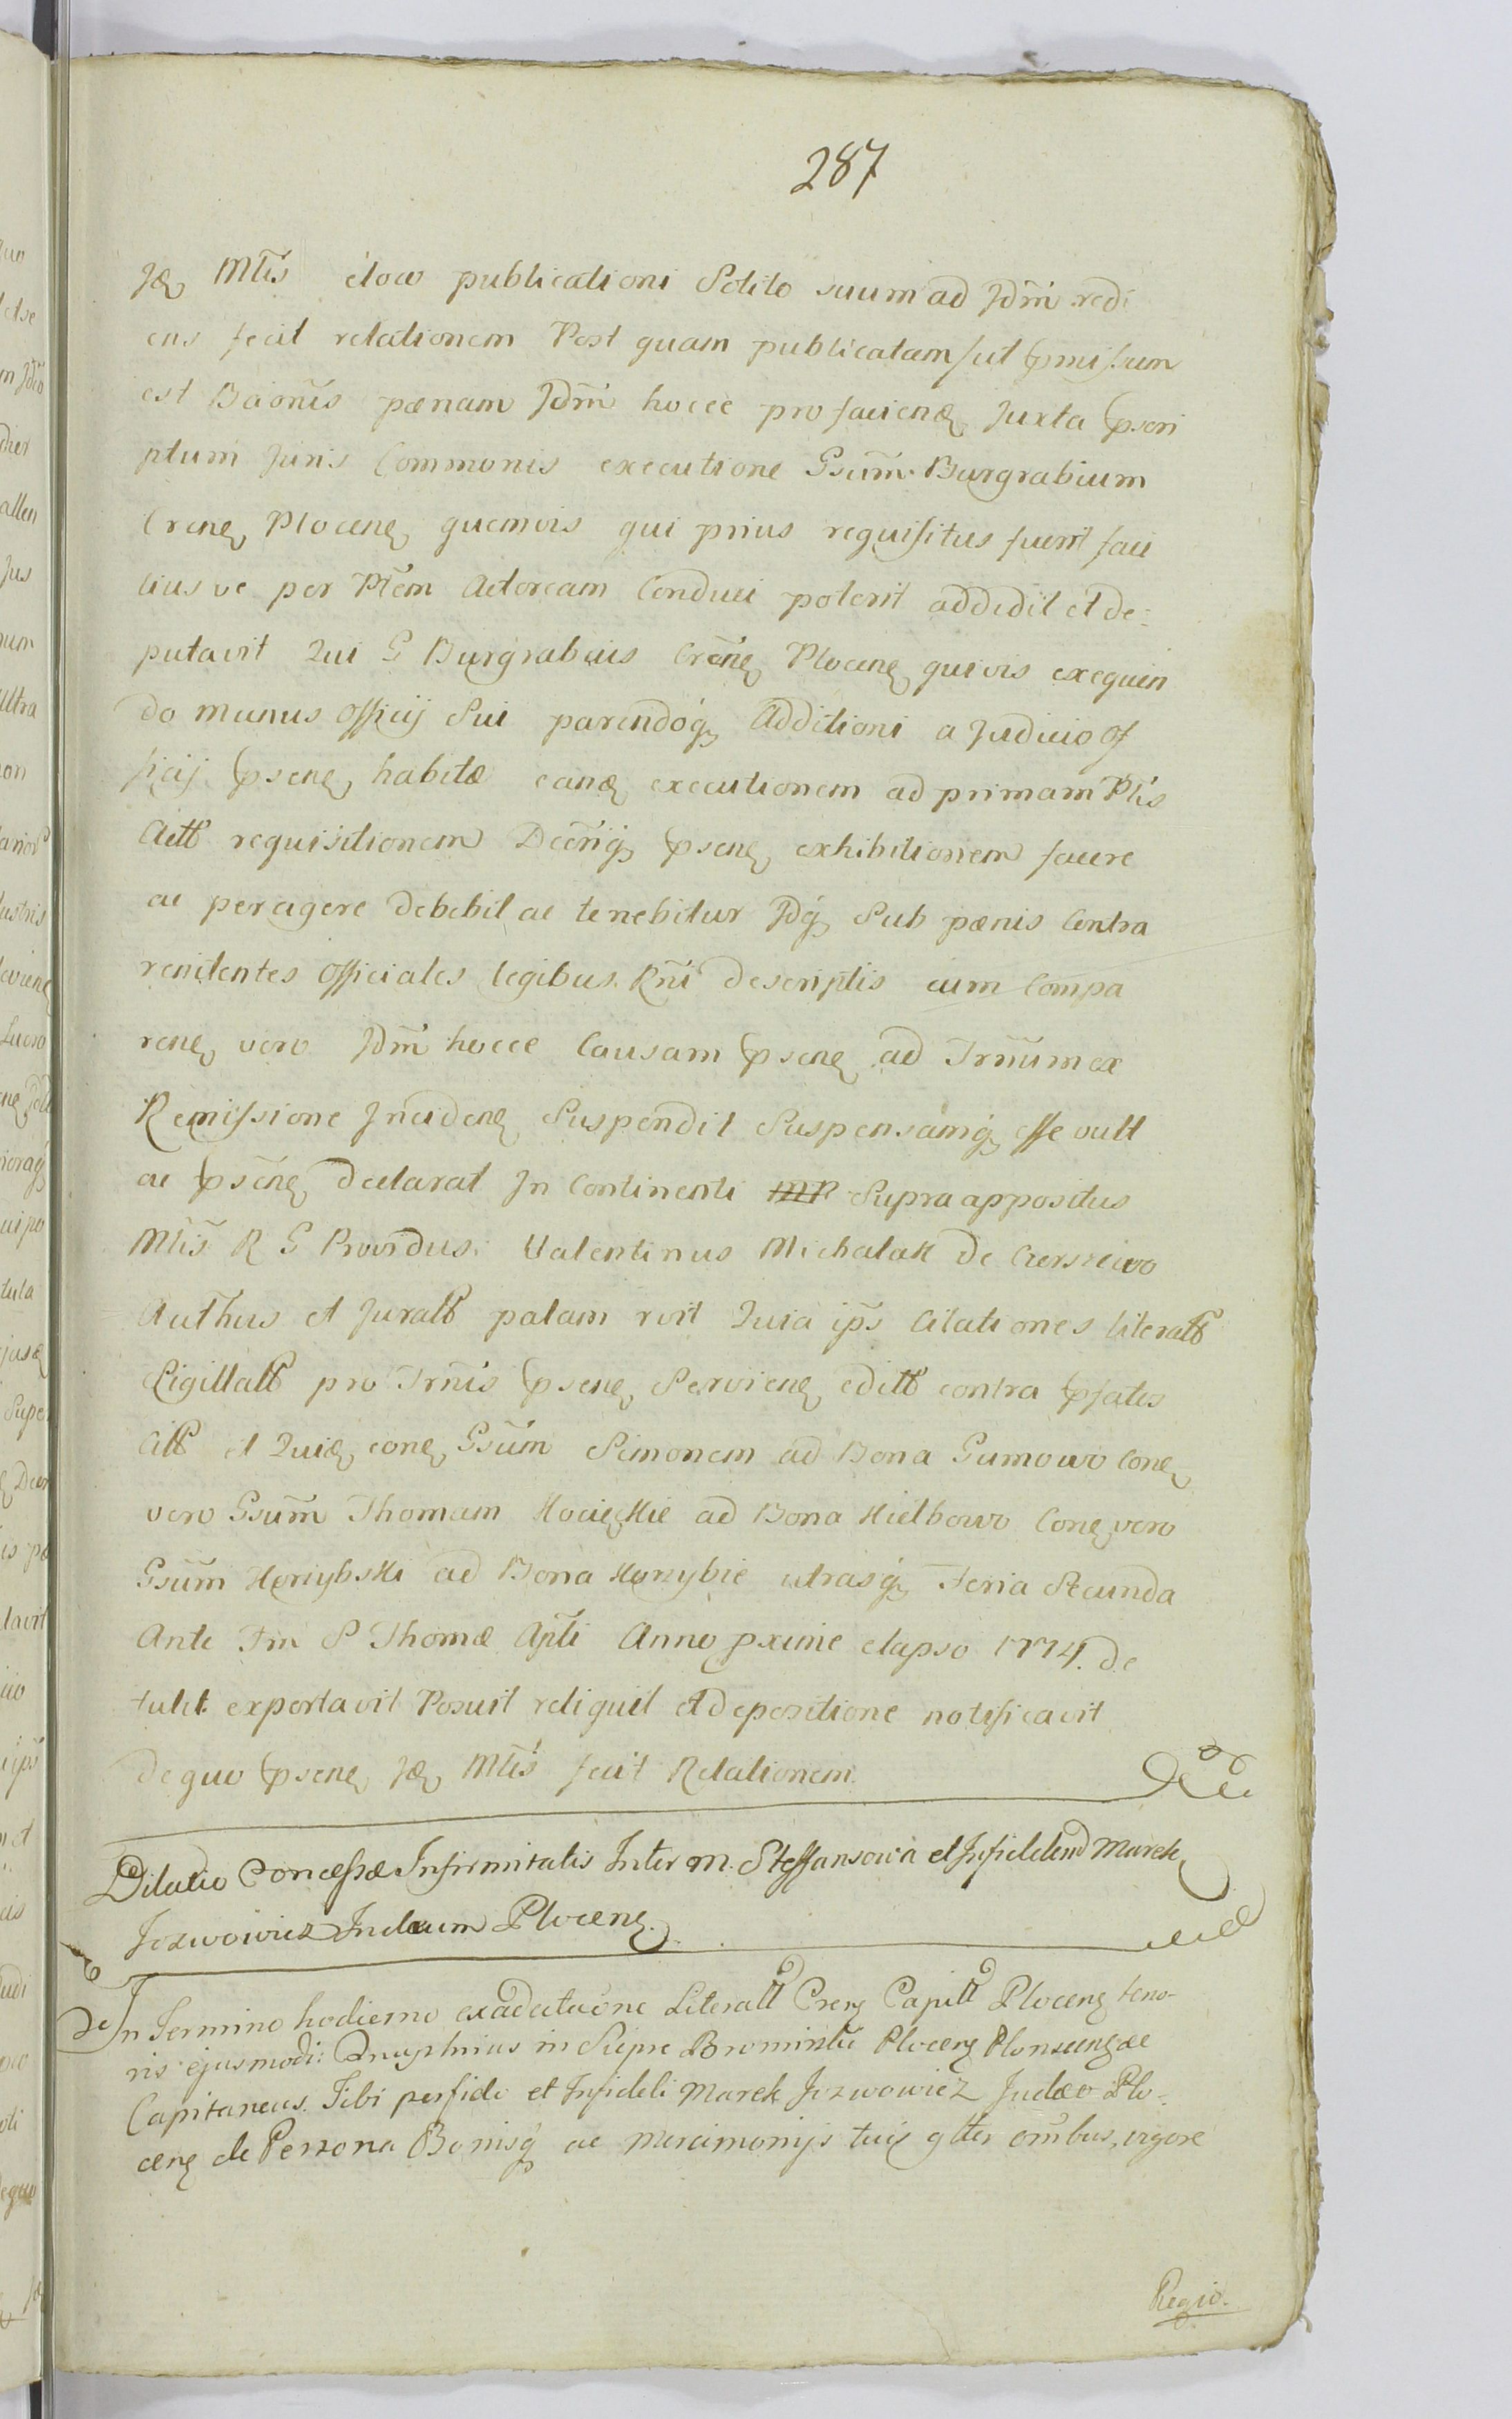 287
Jdę Mtis ejoco publicationi Solito suum ad Jdm̃ redi
ens fecit relationem Post quam publicatam sut ꝑmissum
est Baõnis pænam Jdm̃ hocce pro facienę Juxta ꝑscri
ptum Juris Commonis executione Gsum̃ Burgrabium
Crenę Plocenę quemvis qui prius requisitus fuerit faci
liusve per Ptem̃ Actoream Conduci poterit addidit et de=
putavit Qui G Burgrabius Crẽnę Plocenę quivis exequen
do munus officij Sui parendoq́ Additioni a Judicio of
ficij ꝑsenę habitæ eandę executionem ad primam Ptis
Actt requisitionem Decriq́ ꝑsenę exhibitionem facere
ac peragere debebit ac tenebitur Jdq́ Sub pænis Contra
renitentes Officiales legibus Rni descriptis cum Compa
renę vero Jdm̃ hocce Causam ꝑsenę ad Trm̃um ex
Remissione Jncidenę Suspendit Suspensamq́ esse vult
ac ꝑsenę declarat Jn Continenti Supra appositus
Mtis R G Providus Valentinus Michalak de Cierszewo
Authus et Juratt palam rvit Quia ips Citationes literatt
Sigillatt pro Trm̃is ꝑsenę Servienę editt contra ꝑfatos
Citt et Quidę conę Gsum̃ Simonem ad Bona Gumowo Conę
vero Gsum̃ Thomam Kocięckie ad Bona Kielbowo Conę vero
Gsum̃ Korzybski ad Bona Korzybie utrasq́ Feria Secunda
Ante Fm̃ S Thomæ Apti Anno pxime elapso 1774. de
tulit exportavit Posuit reliquit et depositione notificavit
de quo ꝑsenę Jdę Mtis fecit Relationem.
Dilatio Concessæ Infirmitatis Inter M. Steffansowa et Infidelem Marek
Jozwowicz Judæum Plocenę.
In Termino hodierno ex adcitaõne Literatt Crenę Capitt Plocenę teno-
ris ejusmodi: in Siepre Bromintii Plocenę Plonscenę ac
Capitaneus. Tibi perfido et Infideli Marek Jozwowicz Judæo Plo-
cenę de Persona Bonisq́ ac mercimonijs tuis gtter om̃bus, vigore
Regio.